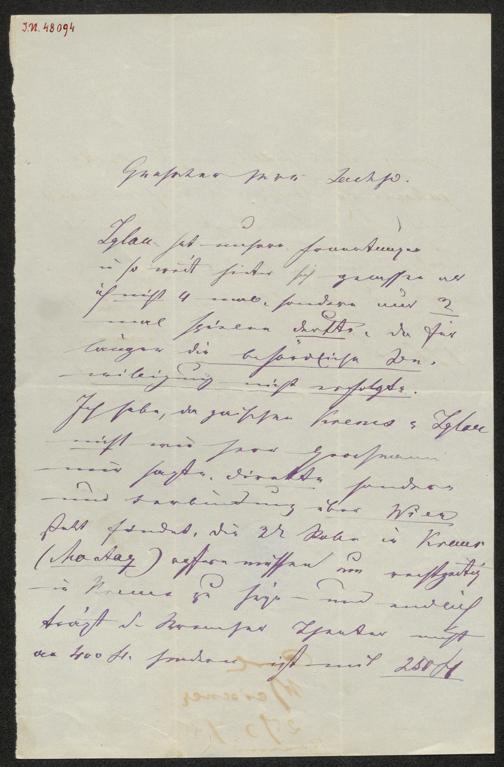 I.N. 48094
Geehrter Herr Sachse.
Iglau hat unsere Erwartungen
u so weit hinter sich gelassen
ich nicht 4 mal, sondern nur 2
mal spielen durfte, da für
länger die behördliche Be-
willigung nicht erfolgte.
Ich habe, da zwischen Krems u Iglau
nicht wie Herr
mir sagte, direkte sondern
nur Verbindung über Wien
statt findet, die in Krems
(Montag) müssen um rechtzeitig
in Krems zu sein – und endlich
trägt d. Kremser Theater nicht
400 fl. sondern ist mit 250 fl